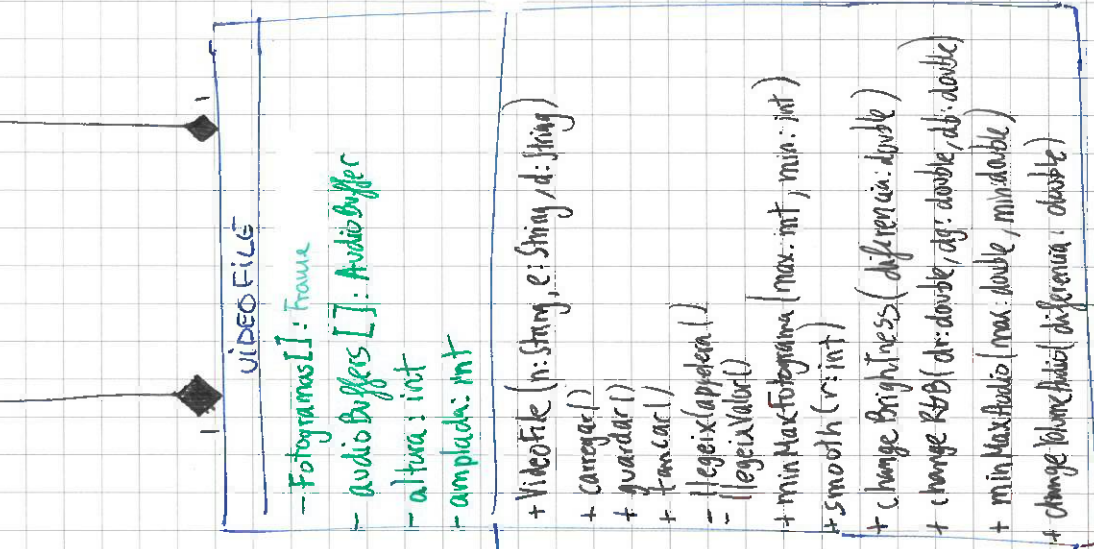 1
1
VIDEOFILE
- Fotogramas[]: Frame
- audioBuffers[]: AudioBuffer
- altura: int
- amplada: int
+ VideoFile (n: String, e: String, d: String)
+ carregar()
+ guardar()
+ tancar()
- llegeixCapçelera()
- llegeixValor()
+ minMaxFotograma (max: int, min: int)
+ smooth (r: int)
+ changeBrightness( diferencia: double)
+ changeRGB( dr: double, dg: double, db: double)
+ minMaxAudio (max: double, min: double)
+ changeVolumeAudio( diferencia: double)